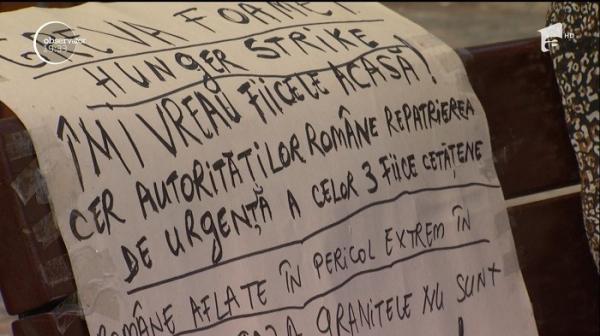 observator
19:33
HD
GREVA FOAMEI
HUNGER STRIKE
ÎMI VREAU FIICELE ACASĂ!
CER AUTORITĂȚILOR ROMÂNE REPATRIEREA
DE URGENȚĂ A CELOR 3 FIICE CETĂȚENE
ROMÂNE AFLATE ÎN PERICOL EXTREM ÎN
GRANIȚELE NU SUNT